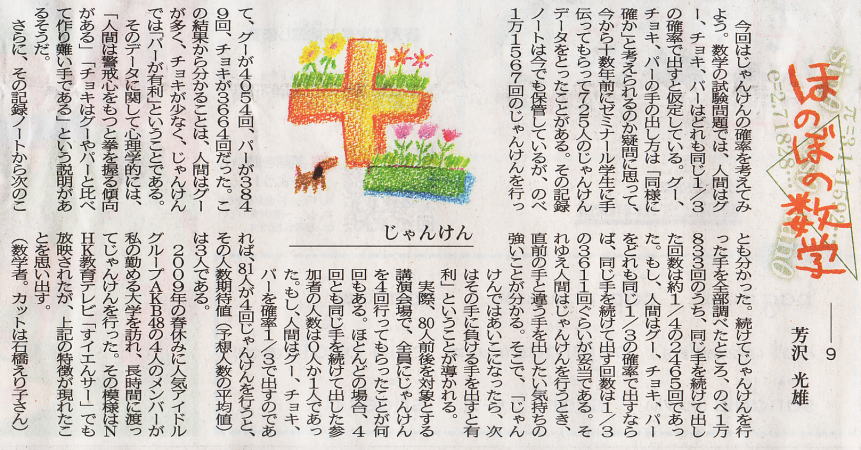 ほのぼの数学
9
芳沢 光雄
じゃんけん
今回はじゃんけんの確率を考えてみ
よう。数学の試験問題では、人間はグ
ー、チョキ、パーはどれも同じ1/3
の確率で出すと仮定している。グー、
チョキ、パーの手の出し方は「同様に
確か」と考えられるのか疑問に思って、
今から十数年前にゼミナール学生に手
伝ってもらって725人のじゃんけん
データをとったことがある。その記録
ノートは今でも保管しているが、のべ
1万1567回のじゃんけんを行っ
て、グーが4054回、パーが384
9回、チョキが3664回だった。こ
の結果から分かることは、人間はグー
が多く、チョキが少なく、じゃんけん
では「パーが有利」ということである。
そのデータに関して心理学的には、
「人間は警戒心をもつと拳を握る傾向
がある」「チョキはグーやパーと比べ
て作り難い手である」という説明があ
るそうだ。
さらに、その記録ノートから次のこ
とも分かった。続けてじゃんけんを行
った手を全部調べたところ、のべ1万
833回のうち、同じ手を続けて出し
た回数は約1/4の2465回であっ
た。もし、人間はグー、チョキ、パー
をどれも同じ1/3の確率で出すなら
ば、同じ手を続けて出す回数は1/3
の3611回ぐらいが妥当である。そ
れゆえ人間はじゃんけんを行うとき、
直前の手と違う手を出したい気持ちの
強いことが分かる。そこで、「じゃん
けんであいこになったら、次
はその手に負ける手を出すと有
利」ということが導かれる。
実際、80人前後を対象とする
講演会場で、全員にじゃんけん
を4回行ってもらったことが何
回もある。ほとんどの場合、4
回とも同じ手を続けて出した参
加者の人数は0人か1人であっ
た。もし、人間はグー、チョキ、
パーを確率1/3で出すのであ
れば、81人が4回じゃんけんを行うと、
その人数期待値(予想人数の平均値)
は3人である。
2009年の春休みに人気アイドル
グループAKB48の4人のメンバーが
私の勤める大学を訪れ、長時間に渡っ
てじゃんけんを行った。その模様はN
HK教育テレビ「すイエんサー」でも
放映されたが、上記の特徴が現れたこ
とを思い出す。
(数学者。カットは石橋えり子さん)